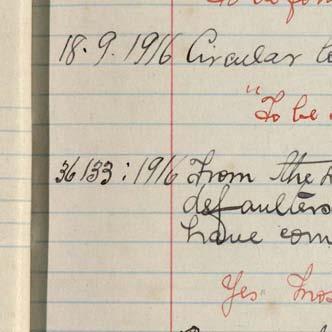 18.9.1916 Circular to
"To be
36133:1916 From the
defaulters
have com
Yes.